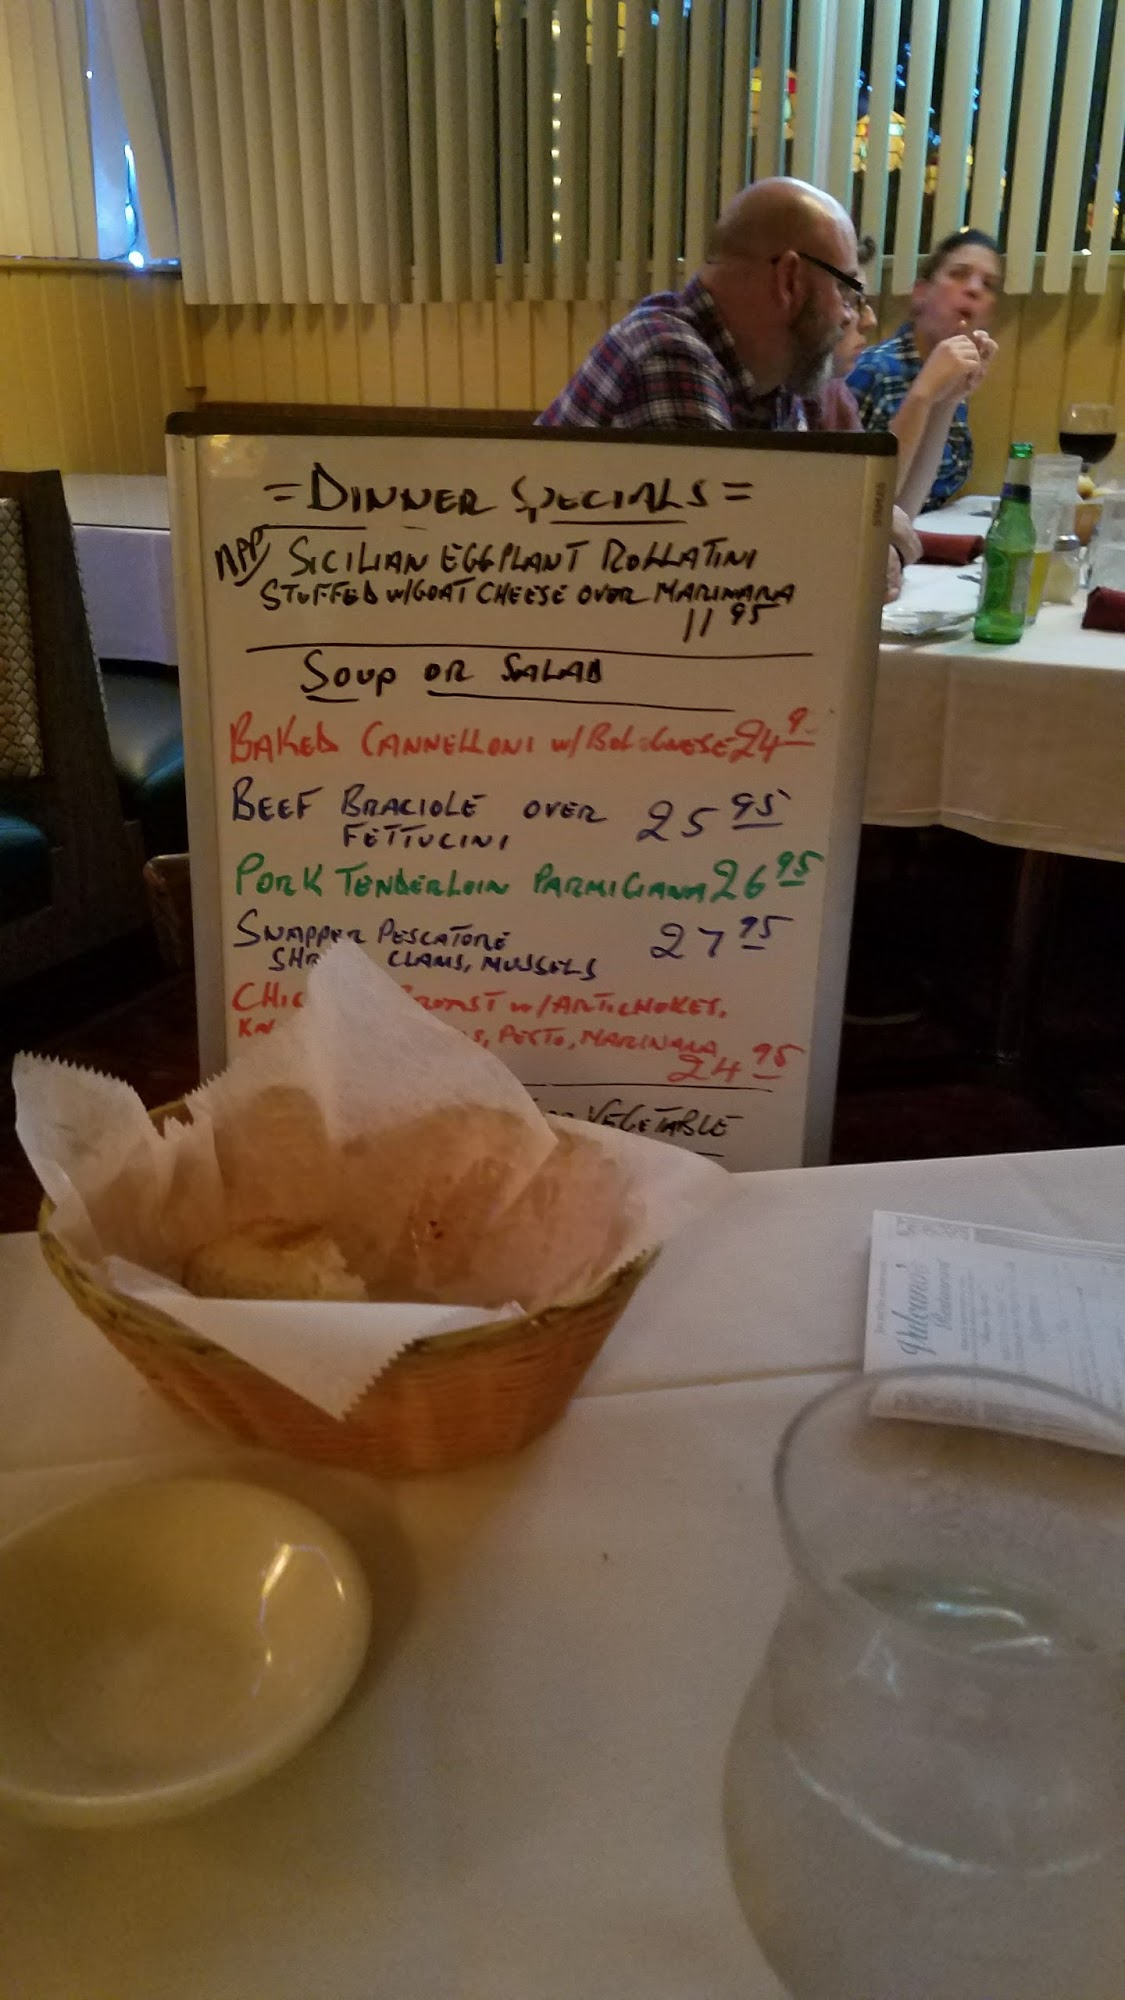 = DINNER SPECIALS =
APP SICILIAN EGGPLANT ROLLATINI
STUFFED W/GOAT CHEESE OVER MARINARA
11 95
SOUP OR SALAD
BAKED CANNELLONI W/BOLOGNESE 24 9
BEEF BRACIOLE OVER 25 95
FETTUCINI
PORK TENDERLOIN PARMIGIANA 26 95
SNAPPER PESCATORE 27 95
CLAMS, MUSSELS
W/ARTICHOKES,
PESTO, MARINARA
24 95
VEGETABLE
Vulcano's
Restaurant